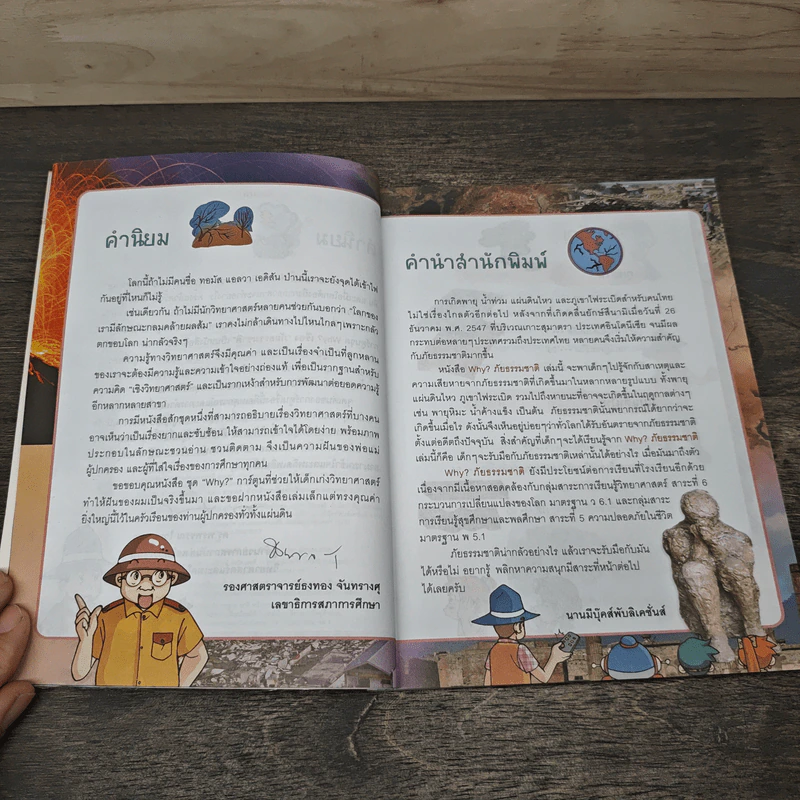 คำนิยม
โลกนี้ถ้าไม่มีคนชื่อ ทอมัส แอลวา เอดิสัน ป่านนี้เราจะยังจุดไต้เข้าไฟ
กันอยู่ที่ไหนก็ไม่รู้
เช่นเดียวกัน ถ้าไม่มีนักวิทยาศาสตร์หลายคนช่วยกันบอกว่า "โลกของ
เรามีลักษณะกลมคล้ายผลส้ม" เราคงไม่กล้าเดินทางไปไหนไกลๆเพราะกลัว
ตกขอบโลก น่ากลัวจริงๆ
ความรู้ทางวิทยาศาสตร์จึงมีคุณค่า และเป็นเรื่องจำเป็นที่ลูกหลาน
ของเราจะต้องมีความรู้และความเข้าใจอย่างถ่องแท้ เพื่อเป็นรากฐานสำหรับ
ความคิด "เชิงวิทยาศาสตร์" และเป็นรากเหง้าสำหรับการพัฒนาต่อยอดความรู้
อีกหลากหลายสาขา
การมีหนังสือสักชุดหนึ่งที่สามารถอธิบายเรื่องวิทยาศาสตร์ที่บางคน
อาจเห็นว่าเป็นเรื่องยากและซับซ้อน ให้สามารถเข้าใจได้โดยง่าย พร้อมภาพ
ประกอบในลักษณะชวนอ่าน ชวนติดตาม จึงเป็นความฝันของพ่อแม่
ผู้ปกครอง และผู้ที่ใส่ใจเรื่องของการศึกษาทุกคน
ขอขอบคุณหนังสือ ชุด "Why?" การ์ตูนที่ช่วยให้เด็กเก่งวิทยาศาสตร์
ทำให้ฝันของผมเป็นจริงขึ้นมา และขอฝากหนังสือเล่มเล็กแต่ทรงคุณค่า
ยิ่งใหญ่นี้ไว้ในครัวเรือนของท่านผู้ปกครองทั่วทั้งแผ่นดิน
รองศาสตราจารย์ธงทอง จันทรางศุ
เลขาธิการสภาการศึกษา
คำนำสำนักพิมพ์
การเกิดพายุ น้ำท่วม แผ่นดินไหว และภูเขาไฟระเบิดสำหรับคนไทย
ไม่ใช่เรื่องไกลตัวอีกต่อไป หลังจากที่เกิดคลื่นยักษ์สึนามิเมื่อวันที่ 26
ธันวาคม พ.ศ. 2547 ที่บริเวณเกาะสุมาตรา ประเทศอินโดนีเซีย จนมีผล
กระทบต่อหลายๆประเทศรวมถึงประเทศไทย หลายคนจึงเริ่มให้ความสำคัญ
กับภัยธรรมชาติมากขึ้น
หนังสือ Why? ภัยธรรมชาติ เล่มนี้ จะพาเด็กๆไปรู้จักกับสาเหตุและ
ความเสียหายจากภัยธรรมชาติที่เกิดขึ้นมาในหลากหลายรูปแบบ ทั้งพายุ
แผ่นดินไหว ภูเขาไฟระเบิด รวมไปถึงหายนะที่อาจจะเกิดขึ้นในฤดูกาลต่างๆ
เช่น พายุหิมะ น้ำค้างแข็ง เป็นต้น ภัยธรรมชาตินั้นพยากรณ์ได้ยากว่าจะ
เกิดขึ้นเมื่อไร ดังนั้นจึงเห็นอยู่บ่อยๆว่าทั่วโลกได้รับอันตรายจากภัยธรรมชาติ
ตั้งแต่อดีตถึงปัจจุบัน สิ่งสำคัญที่เด็กๆจะได้เรียนรู้จาก Why? ภัยธรรมชาติ
เล่มนี้ก็คือ เด็กๆจะรับมือกับภัยธรรมชาติเหล่านั้นได้อย่างไร เมื่อมันมาถึงตัว
Why? ภัยธรรมชาติ ยังมีประโยชน์ต่อการเรียนที่โรงเรียนอีกด้วย
เนื่องจากมีเนื้อหาสอดคล้องกับกลุ่มสาระการเรียนรู้วิทยาศาสตร์ สาระที่ 6
กระบวนการเปลี่ยนแปลงของโลก มาตรฐาน ว 6.1 และกลุ่มสาระ
การเรียนรู้สุขศึกษาและพลศึกษา สาระที่ 5 ความปลอดภัยในชีวิต
มาตรฐาน พ 5.1
ภัยธรรมชาติน่ากลัวอย่างไร แล้วเราจะรับมือกับมัน
ได้หรือไม่ อยากรู้ พลิกหาความสนุกมีสาระที่หน้าต่อไป
ได้เลยครับ
นานมีบุ๊คส์พับลิเคชั่นส์